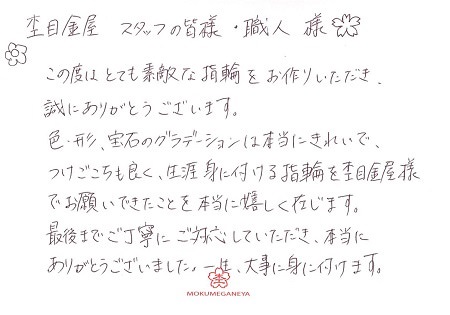 杢目金屋 スタッフの皆様・職人 様
この度はとても素敵な指輪をお作りいただき、
誠にありがとうございます。
色・形、宝石のグラデーションは本当にきれいで、
つけごこちも良く、生涯身に付ける指輪を杢目金屋様
でお願いできたことを本当に嬉しく存じます。
最後までご丁寧にご対応していただき、本当に
ありがとうございました。一生、大事に身に付けます。
MOKUMEGANEYA